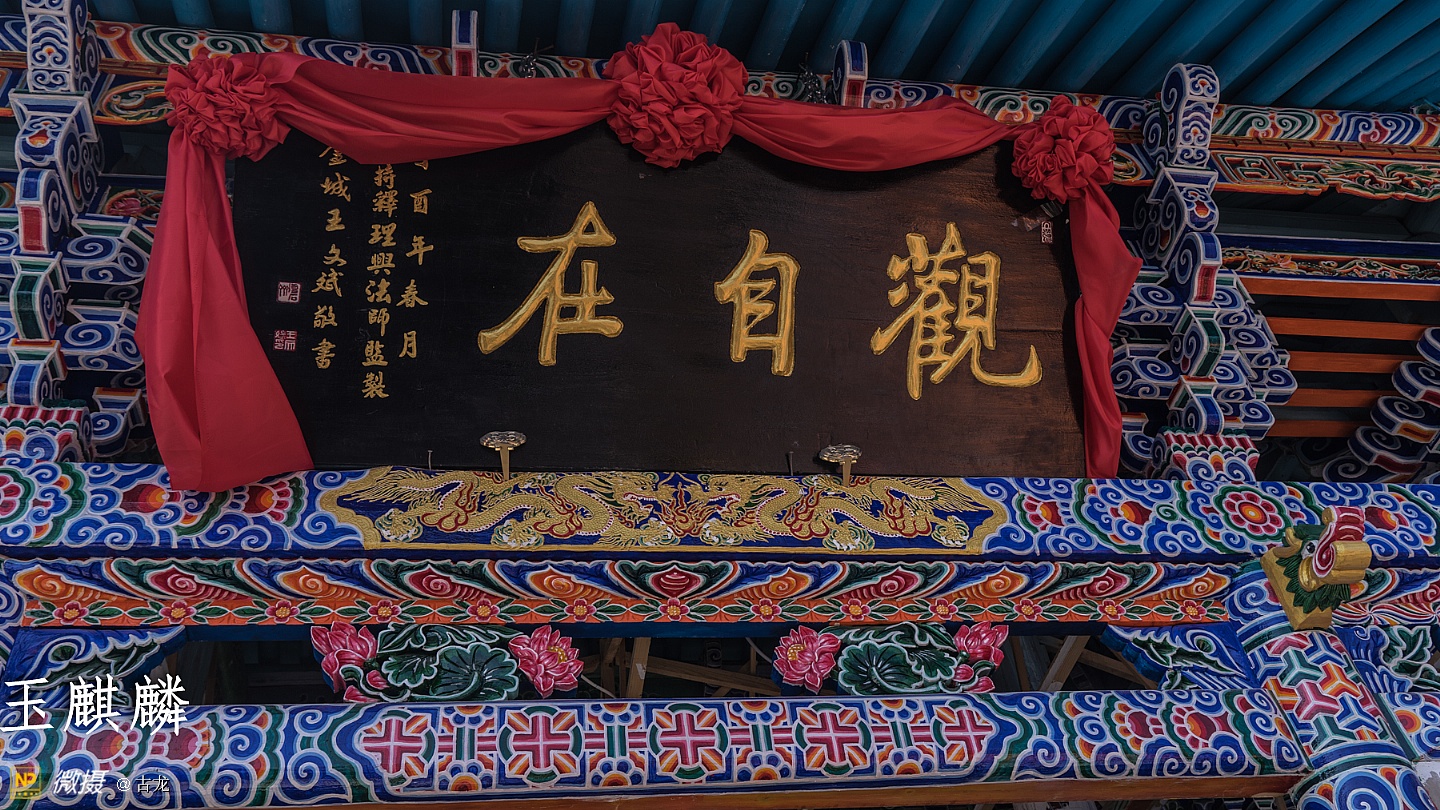 觀自在
酉年春月
持釋理興法師監製
金城王文斌敬書
玉麒麟
NP 微摄 @古龙